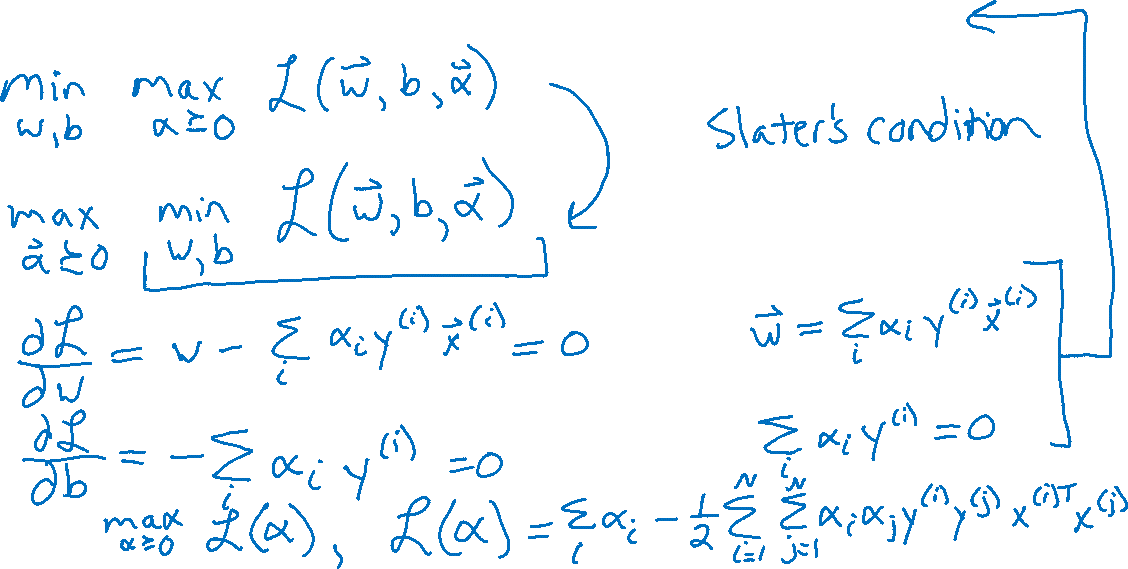 min max ℒ(w⃗, b, α⃗)
w,b α⪰0
Slater's condition
max min ℒ(w⃗, b, α⃗)
α⃗⪰0 w,b
∂ℒ/∂w = w − Σ_i α_i y^(i) x⃗^(i) = 0
w⃗ = Σ_i α_i y^(i) x⃗^(i)
∂ℒ/∂b = −Σ_i α_i y^(i) = 0
Σ_i α_i y^(i) = 0
max_{α⪰0} ℒ(α), ℒ(α) = Σ_i α_i − 1/2 Σ_{i=1}^N Σ_{j=1}^N α_i α_j y^(i) y^(j) x^(i)T x^(j)